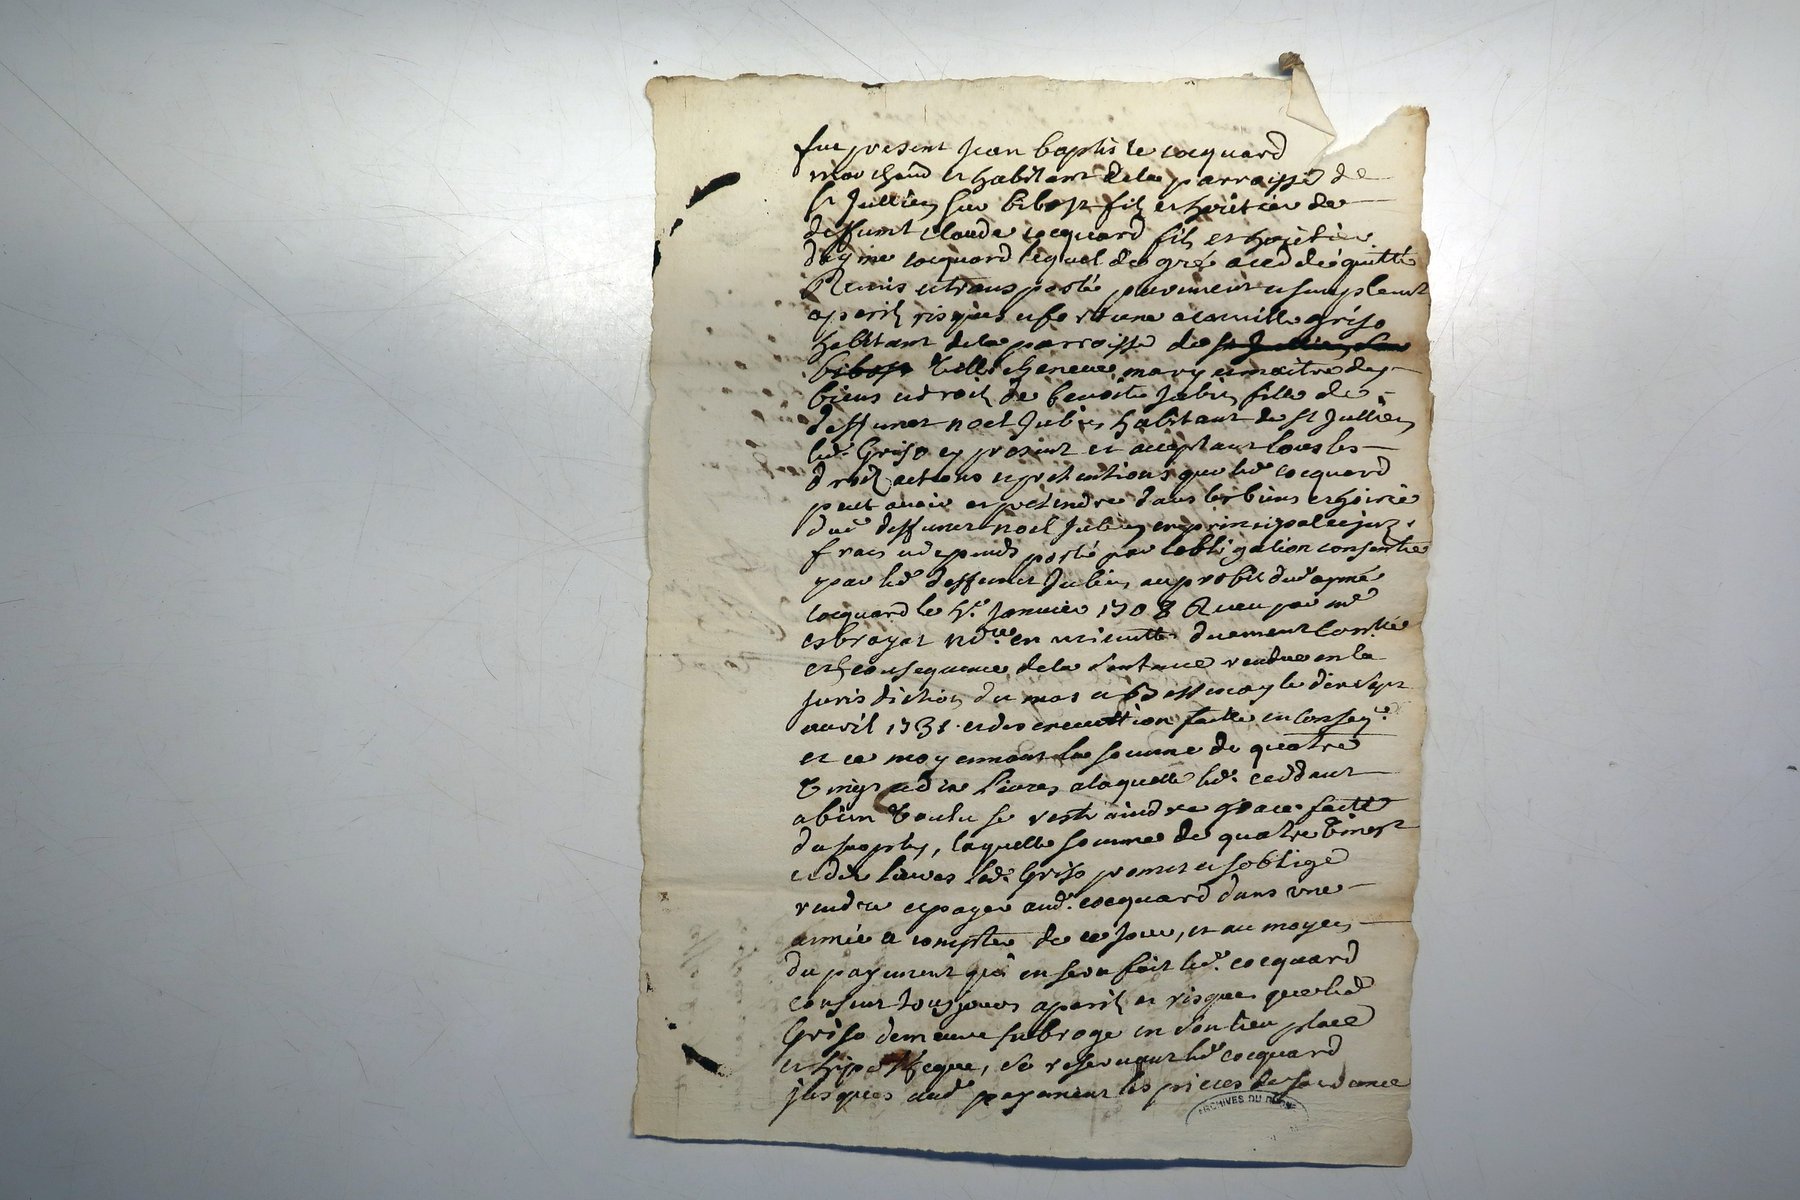 fut present Jean baptiste cocquard
marchand et habitant dela parroisse de
st Jullien sur bibost fils et heritier de
deffunt claude cocquard fils et heritier
daymé cocquard lequel de gré a ceddé quitté
Remis et transporté purement et simplemt
a peril risques et fortune a camille Griso
habitant dela parroisse de st Jullien sur
bibost Villecheneve mary et maitre des
biens et droits de benoite Jubin fille de
deffunct noel Jubin habitant de st Jullien
led. Griso cy present et acceptant tous les
droits actions et pretentions que led cocquard
peut avoir et pretendre dans les biens et hoirie
dud deffunct noel Jubin en principal
frais et depends porté par lobligation consentie
par led deffunct Jubin au profit dud aymé
cocquard le Janvier 1708 Receu par me
esbrayat nore en minutte duement
et consequance dela Santance rendue en la
Jurisdiction du mas le
avril 1731 et des executtion faitte en conseqce
et ce moyennant la somme de quatre
Vingt et dix livres a laquelle led. ceddant
a bien Voulu se restraindre grace faitte
du surplus, laquelle somme de quatre Vingt
et dix livres led. Griso promet et soblige
rendre et payer aud. cocquard dans une
année a compter de ce Jour, et au moyen
du payement qui en sera fait led. cocquard
consent tousjours a peril et risques que led
Griso demeure subrogé en son lieu place
et hipotheque, se reservant led cocquard
jusques aud payement les pieces de
ARCHIVES DU RHONE